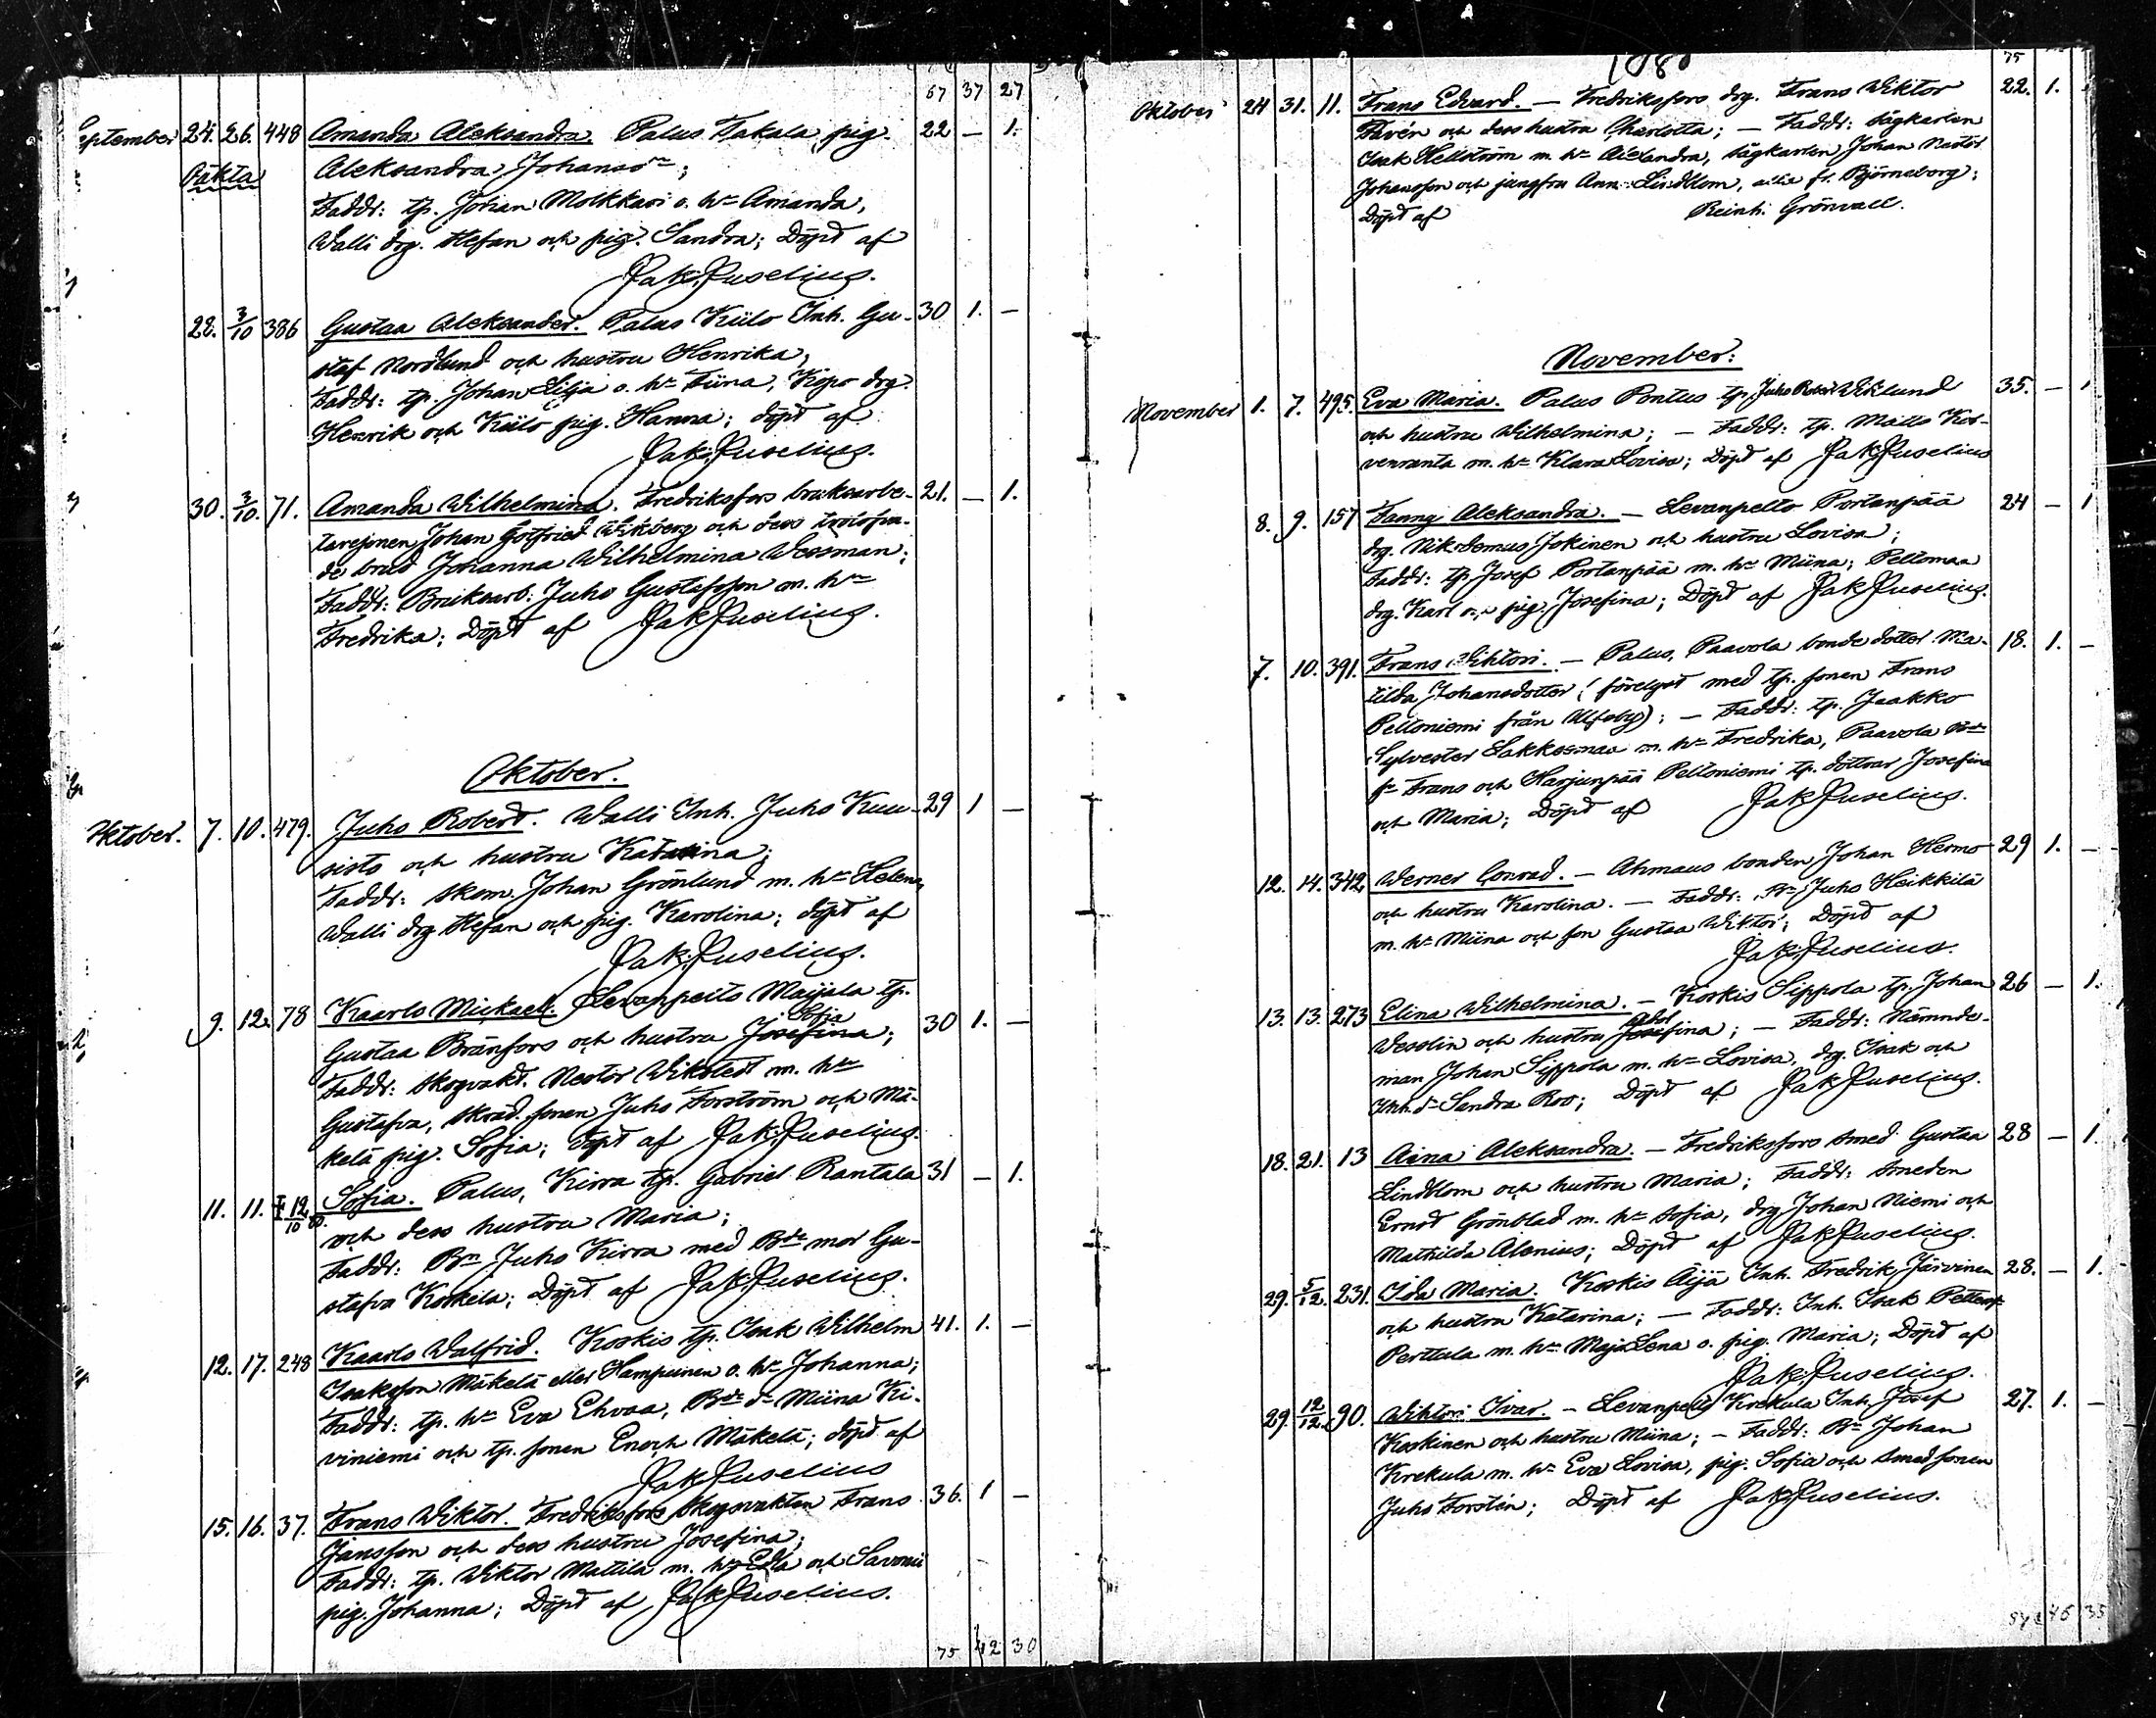 67 37 27
September 24. 26. 448 Amanda Aleksandra. Palus Takala pig. 22 — 1.
Oäkta Aleksandra Johansdr;
Faddr: tp. Johan Molkkari o. hu Amanda,
Walli drg. Stefan och pig. Sandra; Döpt af
Jak. Juselius.
28. 3/10 386 Gustaa Aleksander. Palus Kiilo Inh. Gu- 30 1. —
staf Nordlund och hustru Henrika,
Faddr: tp. Johan Lilja o. hu Tiina, Köpo drg.
Henrik och Kiilo pig. Hanna; döpt af
Jak. Juselius.
30. 3/10. 71. Amanda Wilhelmina. Fredriksfors bruksarbe- 21. — 1.
taresonen Johan Gotfried Wikberg och dess trolofva-
de brud Johanna Wilhelmina Wessman;
Faddr: Bruksarb: Juho Gustafsson m. hu
Fredrika; Döpt af Jak Juselius.
Oktober.
Oktober. 7. 10. 479. Juho Robert. Walli Inh. Juho Kuu- 29 1 —
sisto och hustru Katarina;
Faddr: skom. Johan Grönlund m. hu Helena,
Walli drg Stefan och pig. Karolina; döpt af
Jak. Juselius.
9. 12. 78 Kaarlo Mickael. Levanpelto Maijala tp.
Gustaa Bränfors och hustru Josefina Sofia; 30 1. —
Faddr: skogvakt. Nestor Wikstedt m. hu
Gustafva, skräd. sonen Juho Forström och Mä-
kelä pig. Sofia; döpt af Jak. Juselius.
11. 11. † 12/10 80. Sofia. Palus, Kirra tp. Gabriel Rantala 31 — 1.
och dess hustru Maria;
Faddr: Bn Juho Kirra med Bde mor Gu-
stafva Koskela; Döpt af Jak. Juselius.
12. 17. 248 Kaarlo Walfrid. Koskis tp. Isak Wilhelm 41. 1. —
Isaksson Mäkelä eller Hampuinen o. hu Johanna;
Faddr: tp. hu Eva Ehvaa, Bde dr Miina Ki-
viniemi och tp. sonen Enoch Mäkelä; döpt af
Jak Juselius
15. 16. 37. Frans Wiktor. Fredriksfors skogvakten Frans 36. 1 —
Jansson och dess hustru Josefina;
Faddr: tp. Wiktor Mattila m. hu Edla och Savonii
pig. Johanna; Döpt af Jak Juselius.
75 42 30
1880
75
Oktober 24 31. 11. Frans Edvard. — Fredriksfors drg. Frans Wiktor 22. 1.
och dess hustru Charlotta; — Faddr: sågkarlen
Isak Hellström m. hu Alexandra, sågkarlen Johan Nestor
Johansson och jungfru Anna Lindblom, alla fr. Björneborg;
Döpt af Reinh. Grönvall.
November:
November 1. 7. 495. Eva Maria. Palus Pontus tp. Juho Robert Wiklund 35. — 1
och hustru Wilhelmina; — Faddr: tp. Matts Kor-
venranta m. hu Klara Lovisa; Döpt af Jak. Juselius
8. 9. 157 Fanny Aleksandra. — Levanpelto Portanpää 24 — 1
drg. Nikodemus Jokinen och hustru Lovisa;
Faddr: tp. Josef Portanpää m. hu Miina; Peltomaa
drg. Karl och pig. Josefina; Döpt af Jak Juselius.
7. 10. 391. Frans Wihtori. — Palus, Paavola bonde dotter Ma- 18. 1. —
tilda Johansdotter (förelyst med tp. sonen Frans
Peltoniemi från Ulfsby); — Faddr: tp. Jaakko
Sylvester Lakkosmaa m. hu Fredrika, Paavola Bde
sn Frans och Harjunpää Peltoniemi tp. döttrar Josefina
och Maria; Döpt af Jak Juselius.
12. 14. 342 Werner Conrad. — Ahmaus bonden Johan Hermo 29 1. —
och hustru Karolina. — Faddr: Bn Juho Heikkilä
m. hu Miina och son Gustaa Wiktor; Döpt af
Jak. Juselius.
13. 13. 273 Elina Wilhelmina. — Koskis Sippola tp. Johan 26 — 1.
Wesslin och hustru Josefina; — Faddr: Nämnde-
man Johan Sippola m. hu Lovisa, drg. Isak och
Inh. dr Sandra Roo; Döpt af Jak Juselius.
18. 21. 13 Aina Aleksandra. — Fredriksfors smed Gustaa 28 — 1.
Lindblom och hustru Maria; Faddr: smeden
Ernst Grönblad m. hu Sofia, drg Johan Niemi och
Mathilda Alenius; Döpt af Jak Juselius.
29. 5/12. 231. Ida Maria. Koskis Äijä Inh. Fredrik Järvinen 28. — 1.
och hustru Katarina; — Faddr: Inh. Isak
Perttula m. hu Maja Lena o. pig. Maria; Döpt af
Jak. Juselius.
29. 12/12. 90. Wihtori Ivar. — Levanpelto Krekula Inh. Josef 27. 1. —
Koskinen och hustru Miina; — Faddr: Bn Johan
Krekula m. hu Eva Lovisa, pig. Sofia och smed sonen
Juho Forstén; Döpt af Jak Juselius.
46 35